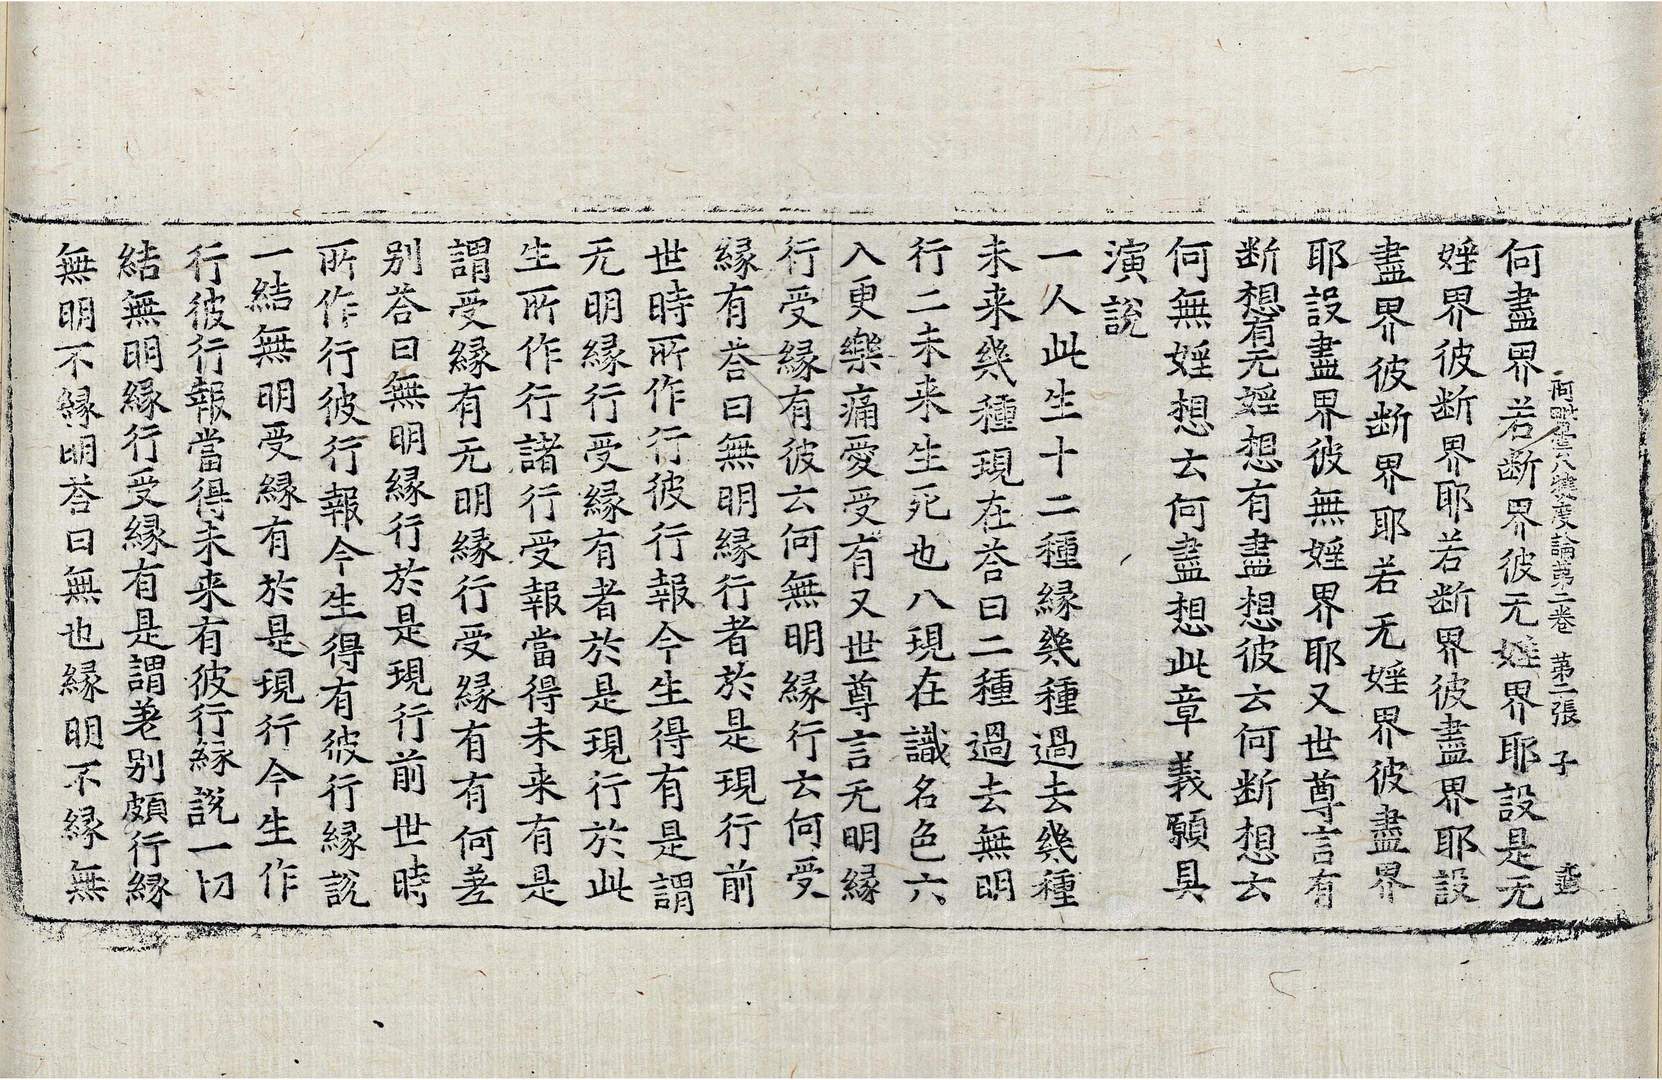 阿毗曇八犍度論第二卷 第二張 子
何盡界若断界彼无婬界耶設是无
婬界彼断界耶若断界彼盡界耶設
盡界彼断界耶若无婬界彼盡界
耶設盡界彼無婬界耶又世尊言有
断想有无婬想有盡想彼云何断想云
何無婬想云何盡想此章義願具
演說
一人此生十二種緣幾種過去幾種
未来幾種現在荅曰二種過去無明
行二未来生死也八現在識名色六
入更樂痛愛受有又世尊言无明緣
行受緣有彼云何無明緣行云何受
緣有荅曰無明緣行者於是現行前
世時所作行彼行報今生得有是謂
无明緣行受緣有者於是現行於此
生所作行諸行受報當得未来有是
謂受緣有无明緣行受緣有有何差
别荅曰無明緣行於是現行前世時
所作行彼行報今生得有彼行緣說
一結無明受緣有於是現行今生作
行彼行報當得未来有彼行緣說一切
結無明緣行受緣有是謂差别頗行緣
無明不緣明荅曰無也緣明不緣無